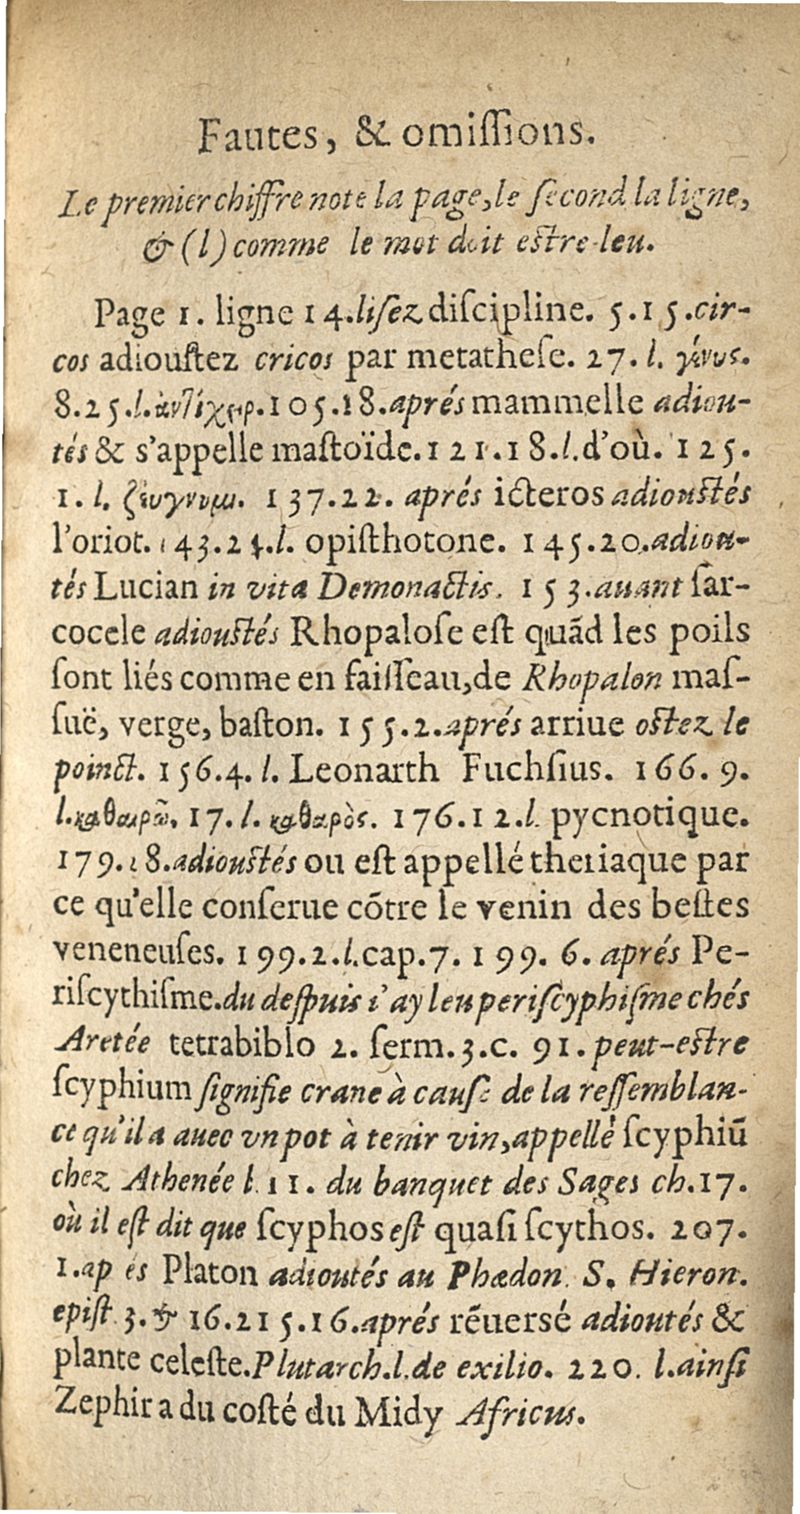 Fautes, & omiſſions.
Le premier chiffre note la page, le ſecond la ligne,
& (l) comme le mot doit eſtre leu.
Page 1. ligne 14. liſez diſcipline. 5.15. cir-
cos adiouſtez cricos par metatheſe. 27. l. γένυς.
8.25. l. ἀντίχειρ. 105.18. aprés mammelle adiou-
tés & s'appelle maſtoïde. 121.18. l. d'où. 125.
1. l. ζεύγνυμι. 137.22. aprés icteros adiouſtés
l'oriot. 143.24. l. opiſthotone. 145.20. adiou-
tés Lucian in vita Demonactis. 153. auant ſar-
cocele adiouſtés Rhopaloſe eſt quãd les poils
ſont liés comme en faiſſeau, de Rhopalon maſ-
ſuë, verge, baſton. 155.2. aprés arriue oſtez le
poinct. 156.4. l. Leonarth Fuchſius. 166. 9.
l. καθαιρῶ. 17. l. καθαρὸς. 176.12. l. pycnotique.
179.18. adiouſtés ou eſt appellé theriaque par
ce qu'elle conſerue cõtre le venin des beſtes
veneneuſes. 199.2. l. cap. 7. 199. 6. aprés Pe-
riſcythiſme. du deſpuis i'ay leu periſcyphiſme chés
Aretée tetrabiblo 2. ſerm. 3. c. 91. peut-eſtre
ſcyphium ſignifie crane à cauſe de la reſſemblan-
ce qu'il a auec vn pot à tenir vin, appellé ſcyphiũ
chez Athenée l. 11. du banquet des Sages ch. 17.
où il eſt dit que ſcyphos eſt quaſi ſcythos. 207.
1. ap es Platon adioutés au Phædon. S. Hieron.
epiſt. 3. & 16. 215.16. aprés rẽuersé adioutés &
plante celeſte. Plutarch. l. de exilio. 220. l. ainſi
Zephir a du coſté du Midy Africus.